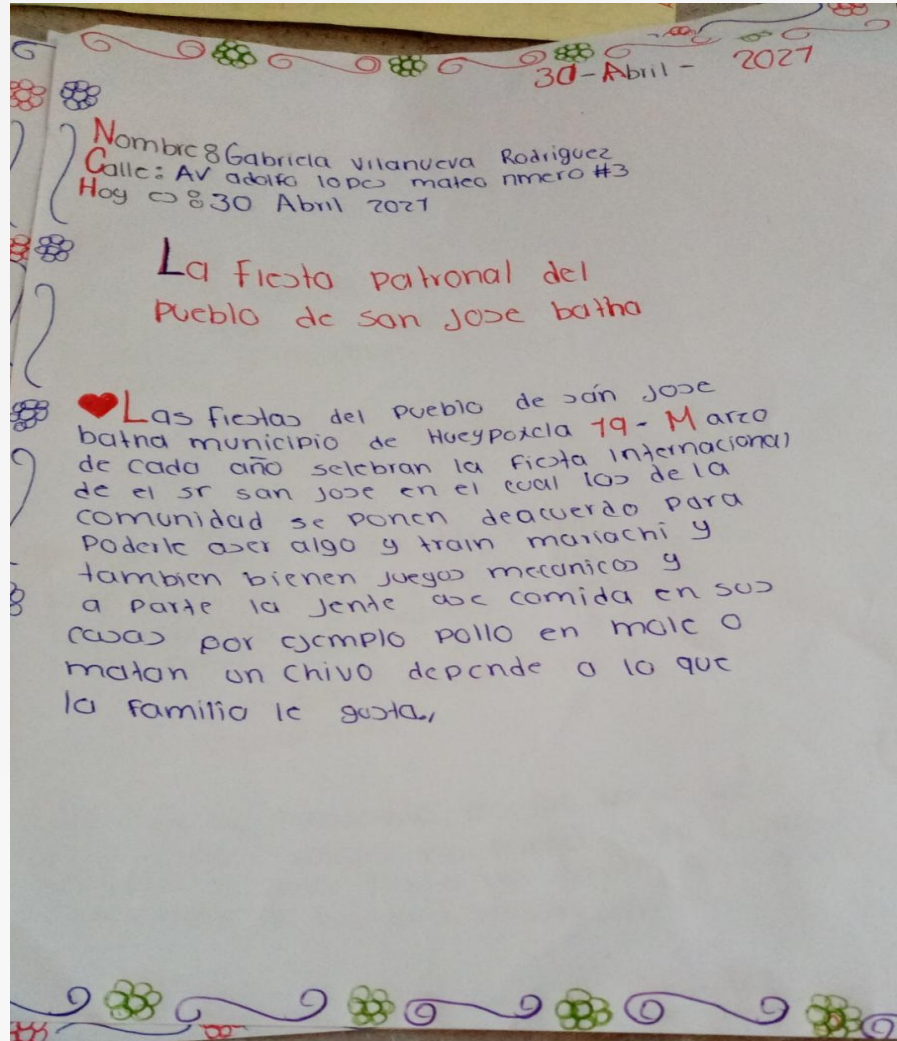 30-Abril- 2021
Nombre: Gabriela Vilanueva Rodriguez
Calle: AV adolfo lopes mateo nmero #3
Hoy es: 30 Abril 2021
La fiesta patronal del
pueblo de san jose batha
Las fiestas del pueblo de sán jose
batha municipio de Hueypoxcla 19-Marzo
de cada año selebran la fiesta internacional
de el sr san jose en el cual los de la
comunidad se ponen deacuerdo para
poderle aser algo y train mariachi y
tambien bienen juegos mecanicos y
a parte la jente ase comida en sus
casas por ejemplo pollo en mole o
matan un chivo depende a lo que
la familia le gusta,